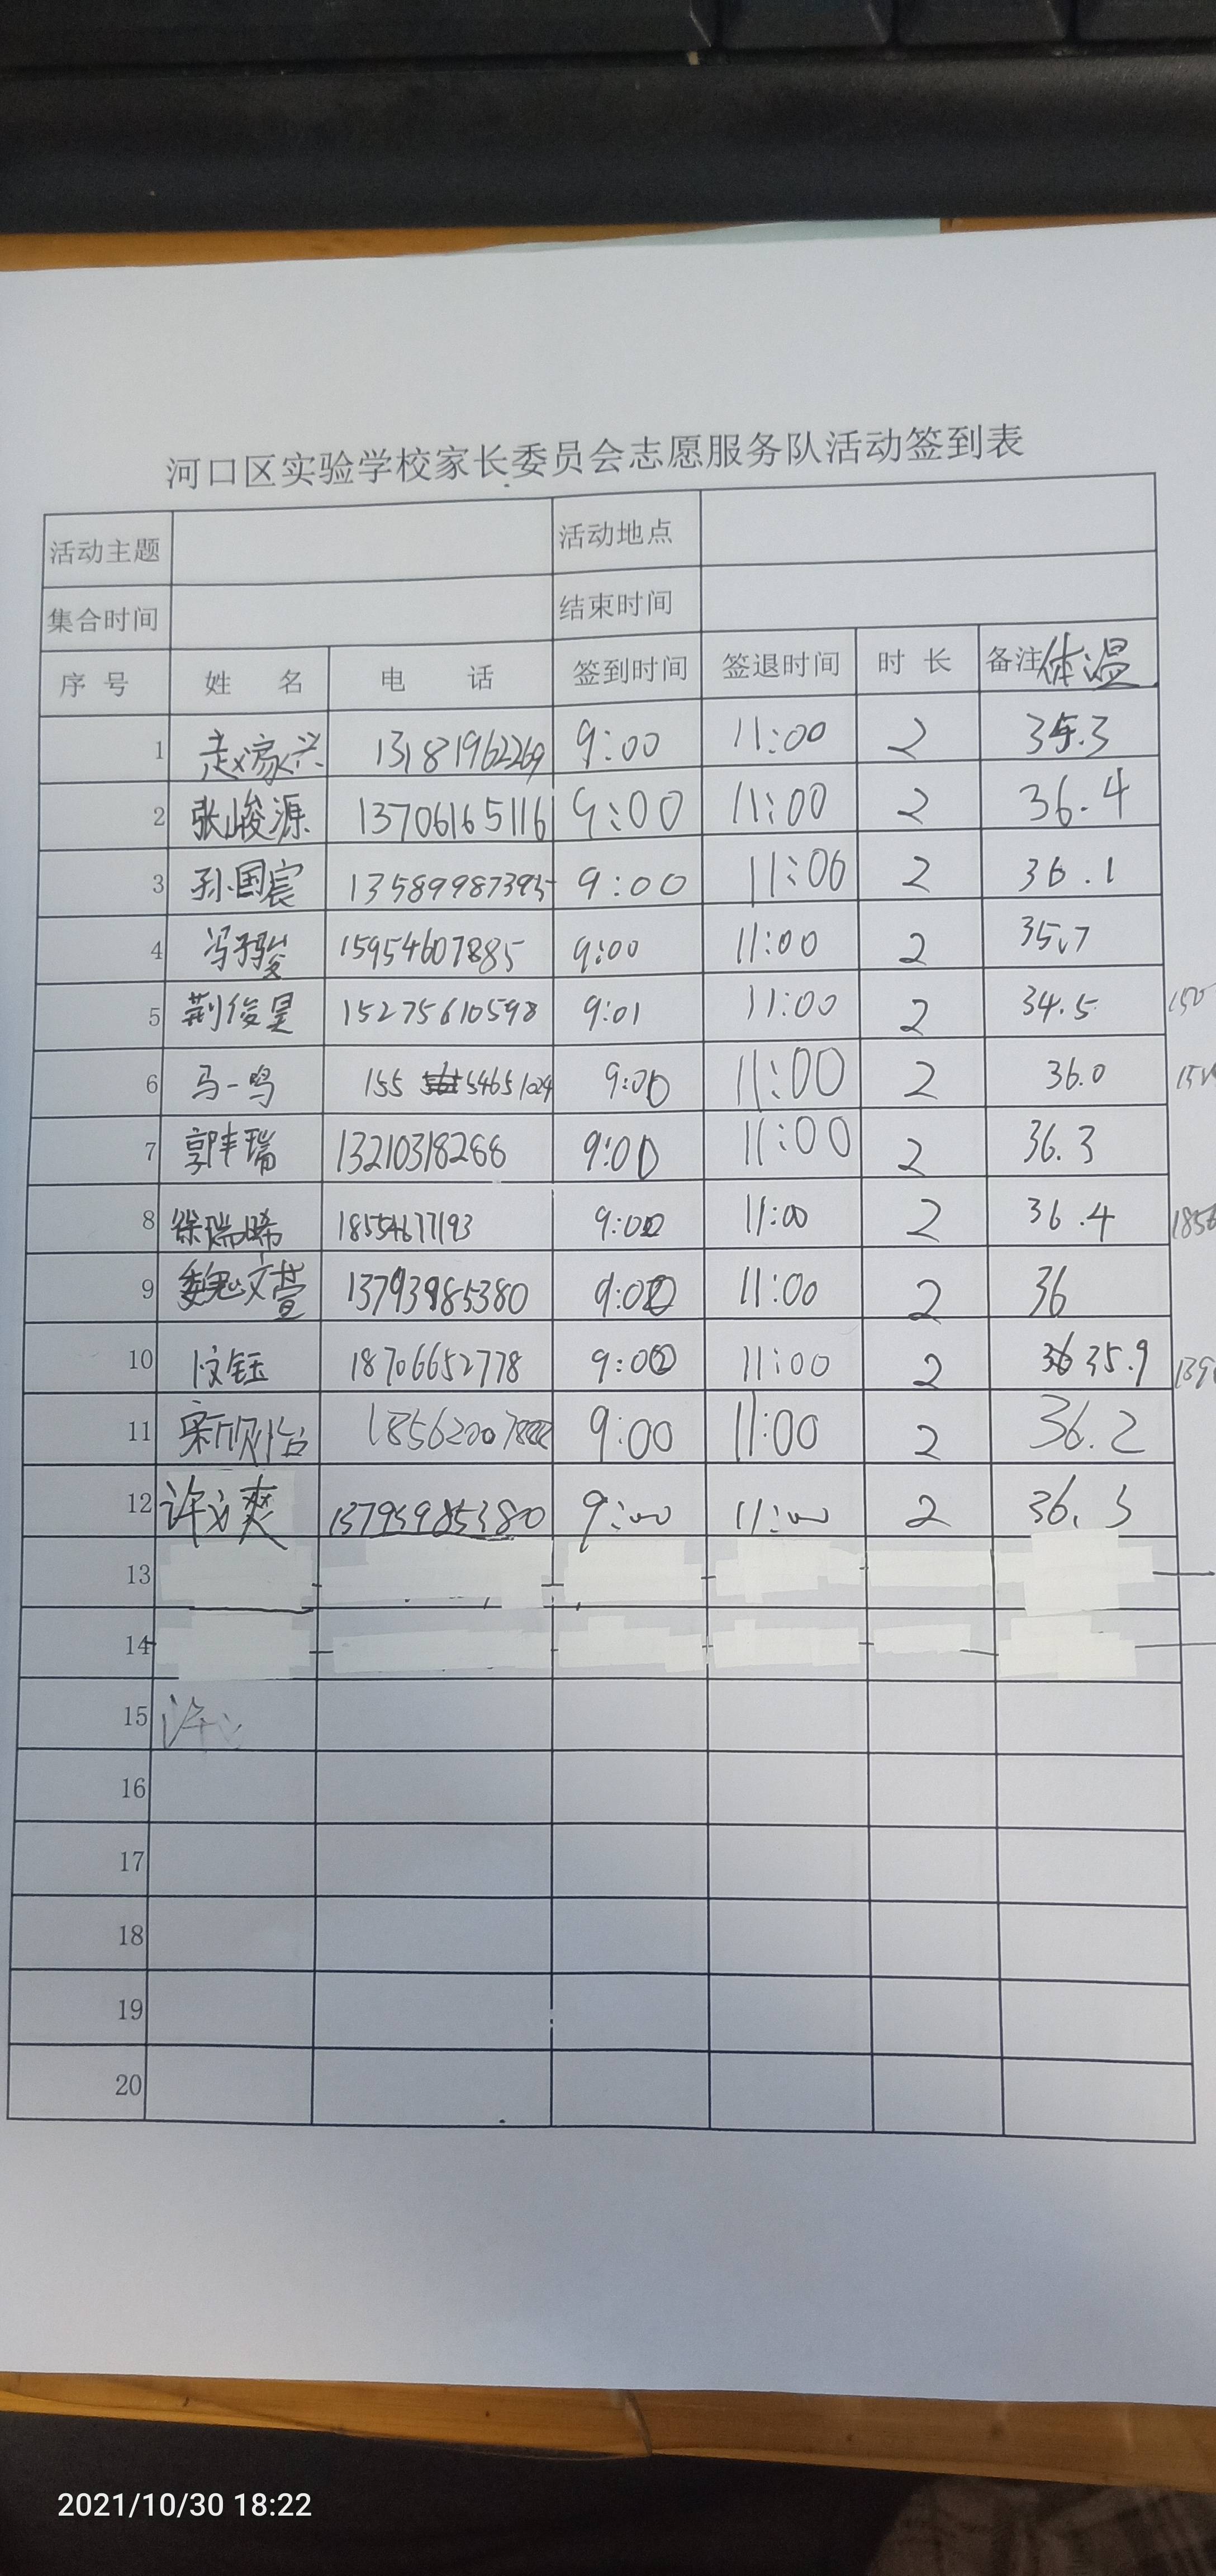 河口区实验学校家长委员会志愿服务队活动签到表
活动主题 活动地点
集合时间 结束时间
序号 姓名 电话 签到时间 签退时间 时长 备注体温
1 赵家兴 13181962269 9:00 11:00 2 35.3
2 张峻源 13706165116 9:00 11:00 2 36.4
3 孙国宸 13589987395 9:00 11:00 2 36.1
4 冯子骏 15954607885 9:00 11:00 2 35.7
5 荆俊昊 15275610598 9:01 11:00 2 34.5
6 马一鸣 155 54651024 9:00 11:00 2 36.0
7 郭丰瑞 13210318288 9:00 11:00 2 36.3
8 徐瑞晞 18554677193 9:00 11:00 2 36.4
9 魏文萱 13793985380 9:00 11:00 2 36
10 18706652778 9:00 11:00 2 35.9
11 9:00 11:00 2 36.2
12 许方爽 13793985380 9:00 11:00 2 36.3
13
14
15 许
16
17
18
19
20
2021/10/30 18:22